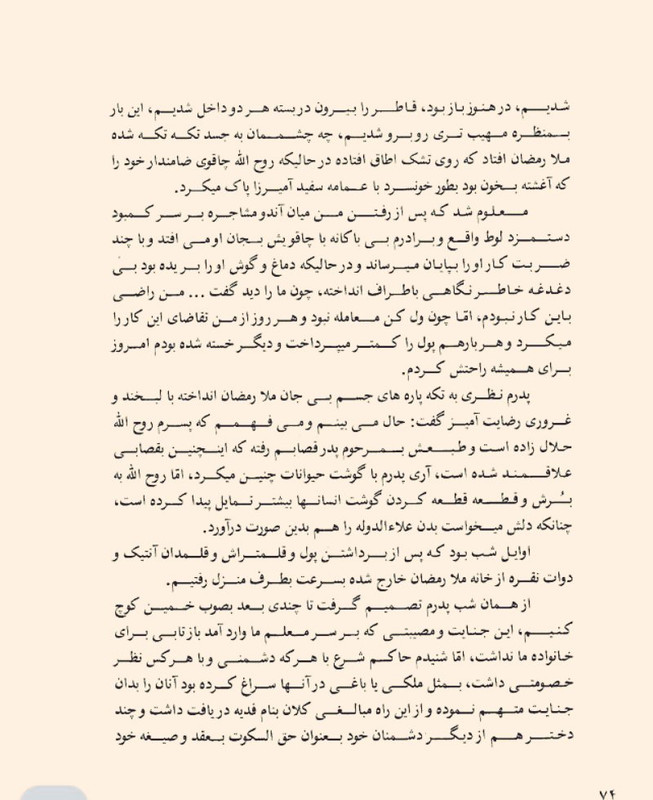 شدیم، در هنوز باز بود، قاطر را بیرون در بسته هر دو داخل شدیم، این بار
بمنظره مهیب تری روبرو شدیم، چه چشممان به جسد تکه تکه شده
ملا رمضان افتاد که روی تشک اطاق افتاده در حالیکه روح الله چاقوی ضامندار خود را
که آغشته بخون بود بطور خونسرد با عمامه سفید آمیرزا پاک میکرد.
معلوم شد که پس از رفتن من میان آندو مشاجره بر سر کمبود
دستمزد لوط واقع و برادرم بی باکانه با چاقویش بجان او می افتد و با چند
ضربت کار او را بپایان میرساند و در حالیکه دماغ و گوش او را بریده بود بی
دغدغه خاطر نگاهی باطراف انداخته، چون ما را دید گفت ... من راضی
باین کار نبودم، امّا چون ول کن معامله نبود و هر روز از من تقاضای این کار را
میکرد و هر بار هم پول را کمتر میپرداخت و دیگر خسته شده بودم امروز
برای همیشه راحتش کردم.
پدرم نظری به تکه پاره های جسم بی جان ملا رمضان انداخته با لبخند و
غروری رضایت آمیز گفت: حال می بینم و می فهمم که پسرم روح الله
حلال زاده است و طبعش بمرحوم پدر قصابم رفته که اینچنین بقصابی
علاقمند شده است، آری پدرم با گوشت حیوانات چنین میکرد، امّا روح الله به
بُرش و قطعه قطعه کردن گوشت انسانها بیشتر تمایل پیدا کرده است،
چنانکه دلش میخواست بدن علاءالدوله را هم بدین صورت درآورد.
اوایل شب بود که پس از برداشتن پول و قلمتراش و قلمدان آنتیک و
دوات نقره از خانه ملا رمضان خارج شده بسرعت بطرف منزل رفتیم.
از همان شب پدرم تصمیم گرفت تا چندی بعد بصوب خمین کوچ
کنیم، این جنایت و مصیبتی که بر سر معلم ما وارد آمد بازتابی برای
خانواده ما نداشت، امّا شنیدم حاکم شرع با هر که دشمنی و با هر کس نظر
خصومتی داشت، بمثل ملکی یا باغی در آنها سراغ کرده بود آنان را بدان
جنایت متهم نموده و از این راه مبالغی کلان بنام فدیه دریافت داشت و چند
دختر هم از دیگر دشمنان خود بعنوان حق السکوت بعقد و صیغه خود
۷۴